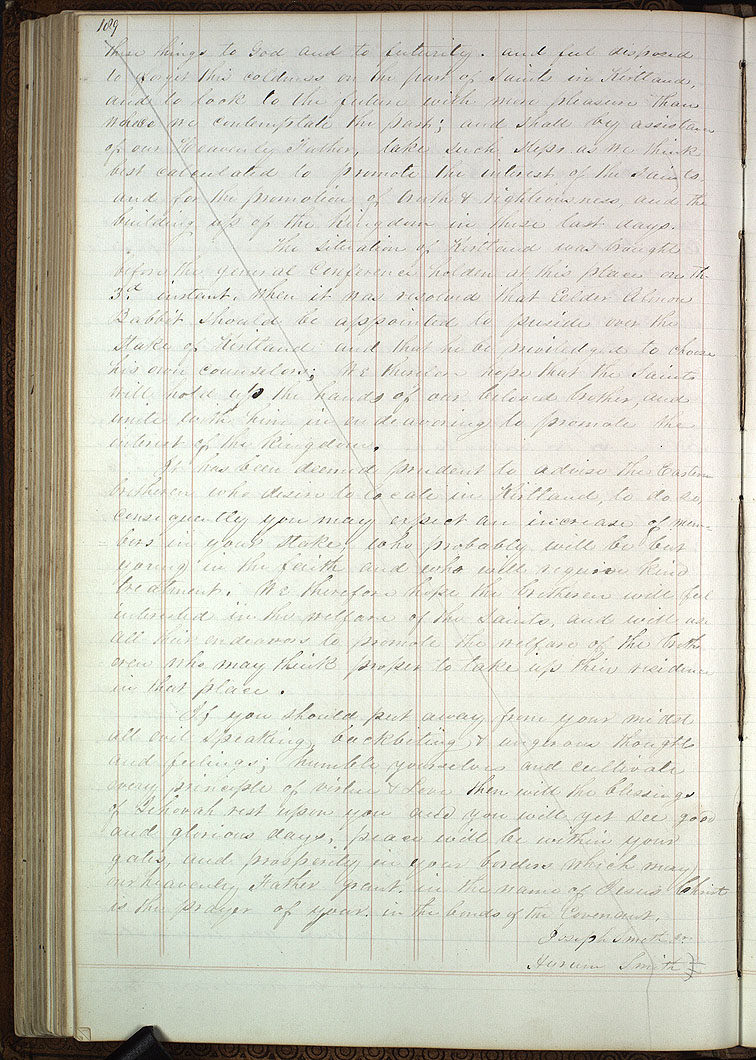 189
these things to God and to futurity. and feel disposed
to forget this coldness on the part of Saints in Kirtland,
and to look to the future with more pleasure than
we contemplate the past; and shall by assistan
of our Heavenly Father, take such steps as we think
best calculated to promote the interest of the Saints,
and for the promotion of truth & righteousness, and the
building up of the kingdom in these last days.
The situation of Kirtland was brought
before the general Conference holden at this place on th
3d. instant. When it was resolved that Elder Almon
Babbit should be appointed to preside over the
Stake of Kirtland and that he be priviledged to choose
his own counselors; We therefore hope that the Saints
will hold up the hands of our beloved brother, and
unite with him in endeavoring to promote the
interest of the kingdom.
It has been deemed prudent to advise the Eastern
bretheren who desire to locate in Kirtland, to do so,
consequently you may expect an increase of mem-
bers in your stake, who probably will be but
young in the faith and who will require kind
treatment. We therefore hope the bretheren will feel
interested in the welfare of the Saints, and will use
all their endeavors to promote the welfare of the breth-
eren who may think proper to take up their residence
in that place.
If you should put away from your midst
all evil speaking, backbiting, & ungerous thoughts
and feelings; humble yourselves and cultivate
every principle of virtue & Love then will the blessings
of Jehovah rest upon you and you will yet see good
and glorious days, peace will be within your
gates, and prosperity in your borders which may
our heavenly Father grant. in the name of Jesus Christ
is the prayer of your. in the bonds of the Covenant,
Joseph Smith Jr
Hyrum Smith